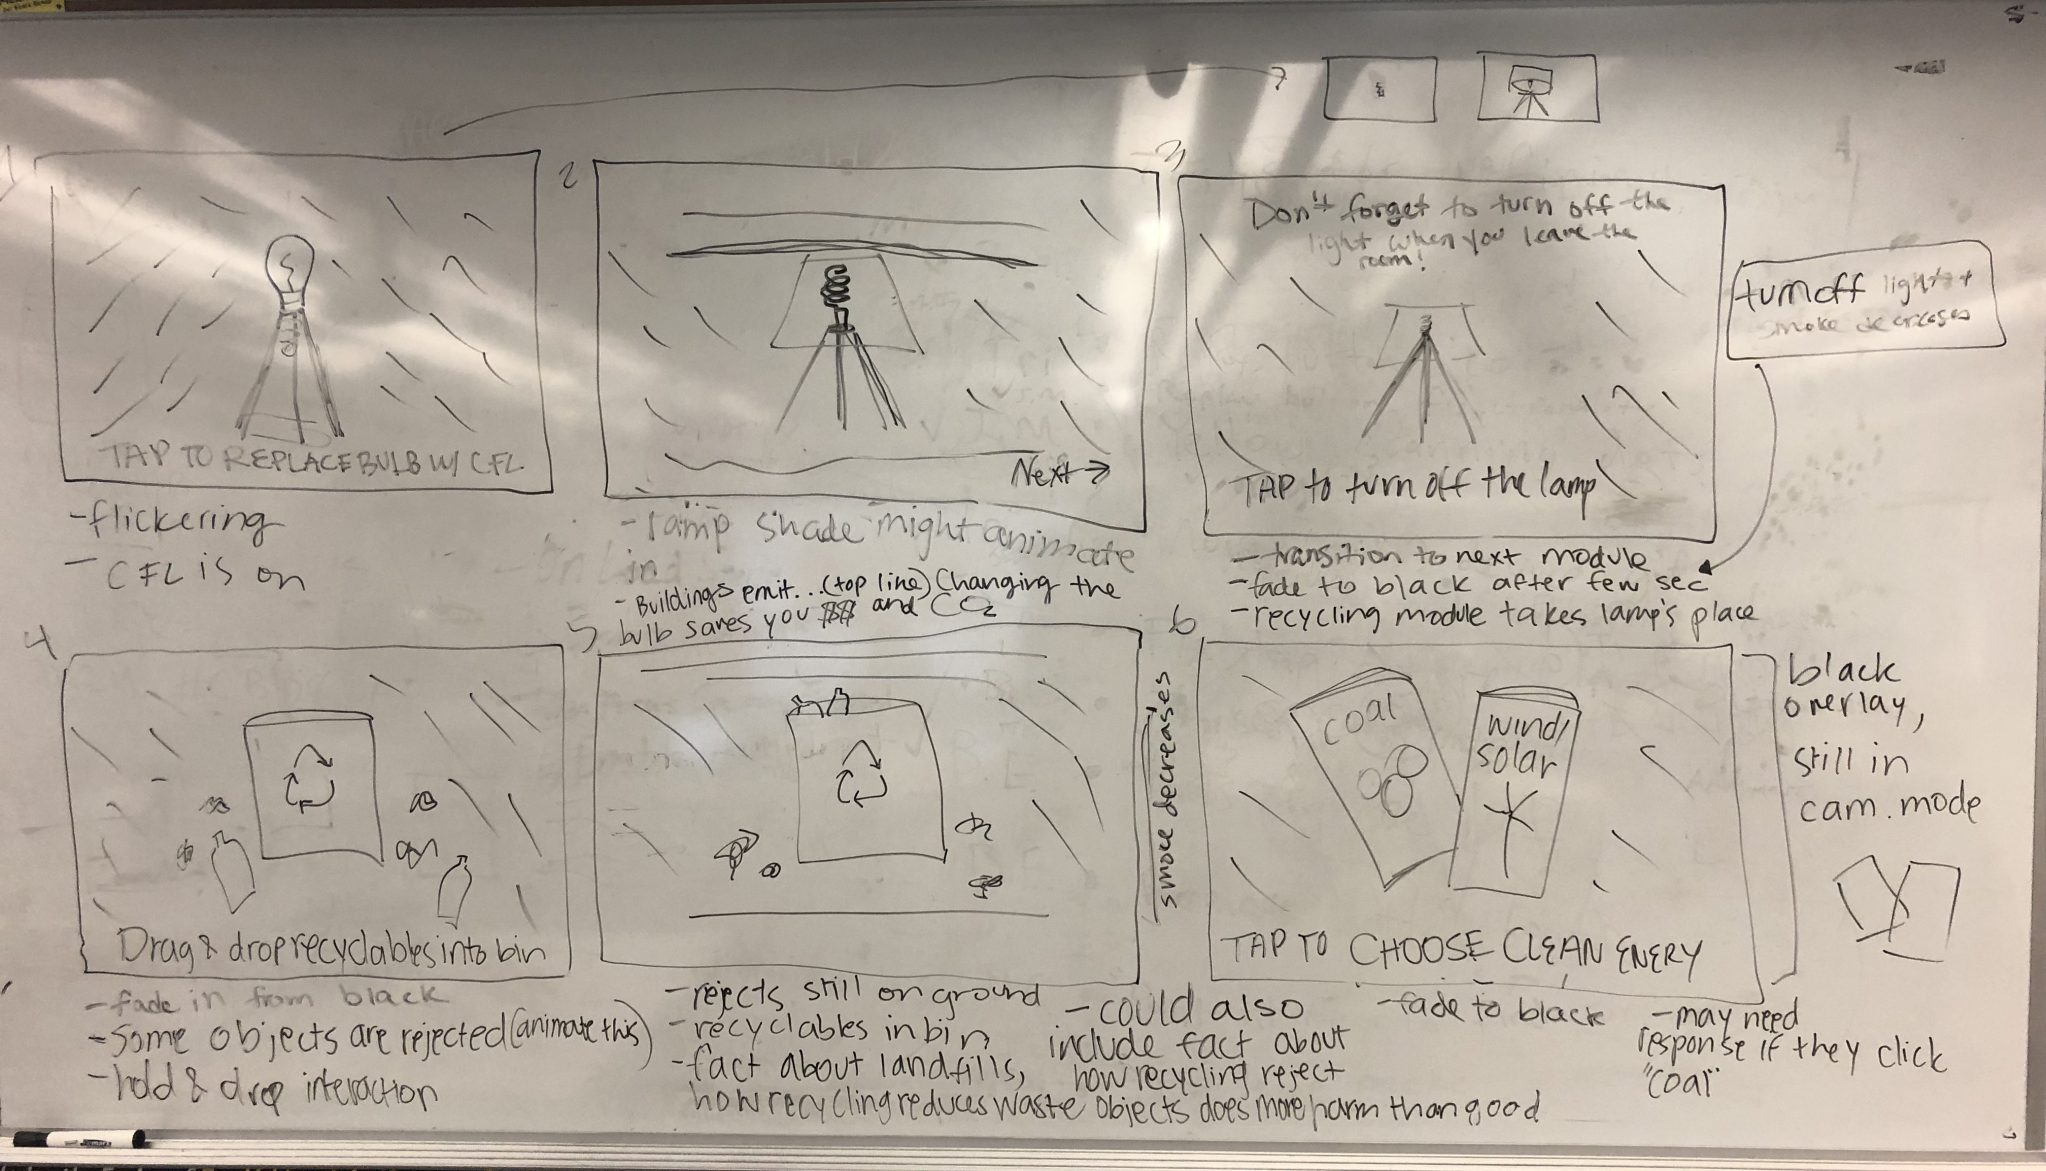 1
TAP TO REPLACE BULB W/ CFL
- flickering
- CFL is on
2
Next →
- lamp shade might animate
in
- Buildings emit...(top line) Changing the
bulb saves you $$$ and CO2
3
Don't forget to turn off the
light when you leave the
room!
TAP to turn off the lamp
turn off lights +
smoke decreases
- transition to next module
- fade to black after few sec
- recycling module takes lamp's place
4
Drag & drop recyclables into bin
- fade in from black
- some objects are rejected (animate this)
- hold & drop interaction
5
smoke decreases
- rejects still on ground
- recyclables in bin
- fact about landfills,
how recycling reduces waste
- could also
include fact about
how recycling reject
objects does more harm than good
6
coal
wind/
solar
TAP TO CHOOSE CLEAN ENERY
black
overlay,
still in
cam. mode
- fade to black
- may need
response if they click
"coal"